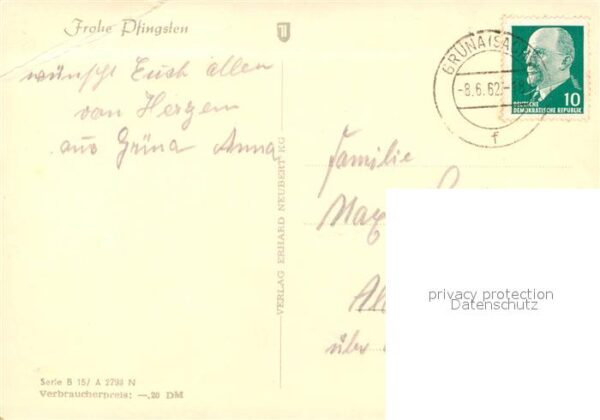 Frohe Pfingsten
wünscht Euch allen
von Herzen
aus Grüna Anna
VERLAG ERHARD NEUBERT KG
GRÜNA (SA
-8.6.62.-
f
10
DEUTSCHE
DEMOKRATISCHE REPUBLIK
Familie
Max
über
privacy protection
Datenschutz
Serie B 15/ A 2798 N
Verbraucherpreis: —.20 DM